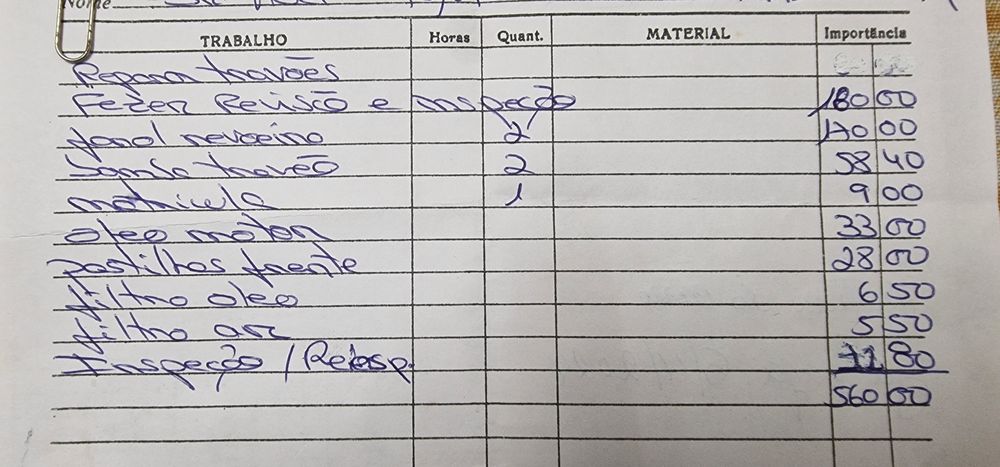 Nome
TRABALHO Horas Quant. MATERIAL Importância
Reparar travões
Fezer Revisão e inspeção 180 00
farol nevoeiro 2 170 00
bomba travão 2 58 40
matricula 1 9 00
oleo motor 33 00
pastilhas frente 28 00
filtro oleo 6 50
filtro ar 5 50
Inspeção / Reinsp. 71 80
560 00